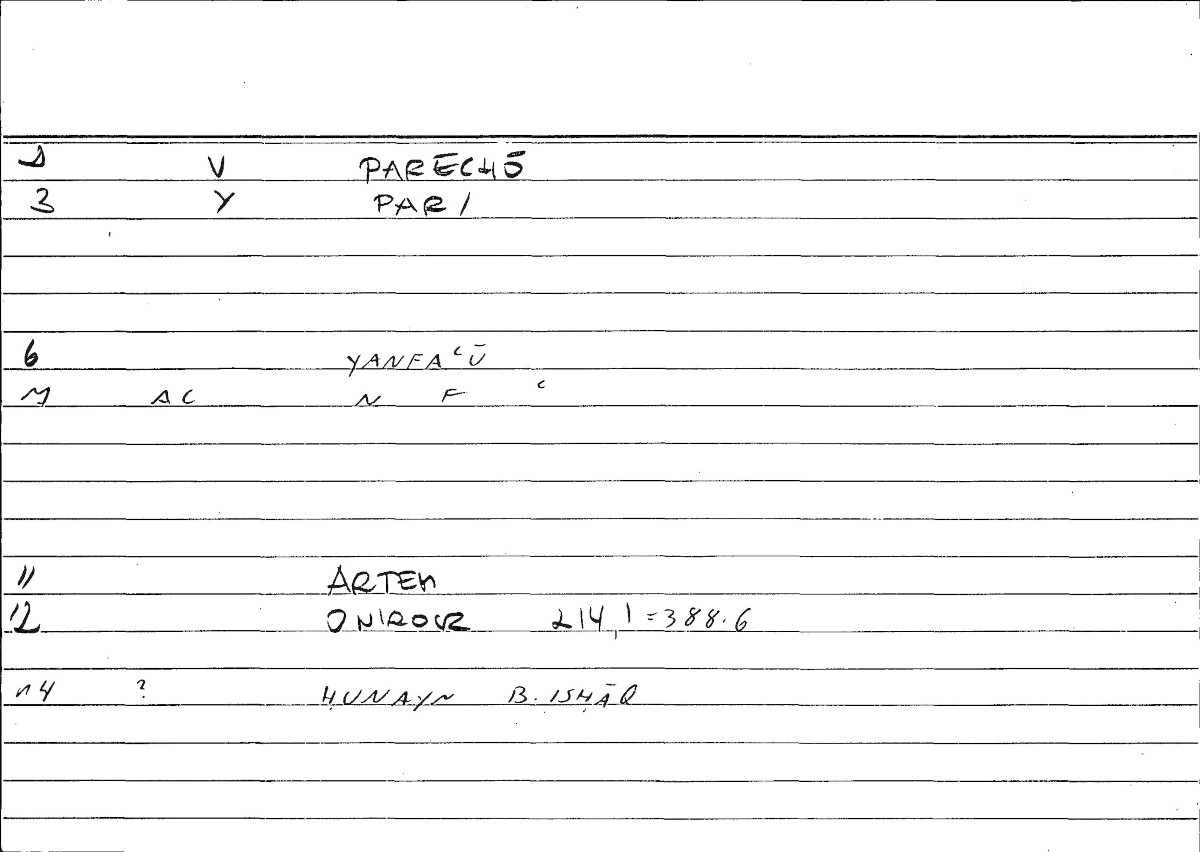 1 V PARĒCHŌ
3 Y PAR/
6 YANFAʿŪ
M AC N F ʿ
11 ARTEM
12 ONIROCR 214,1=388.6
14 ? ḤUNAYN B. ISḤĀQ